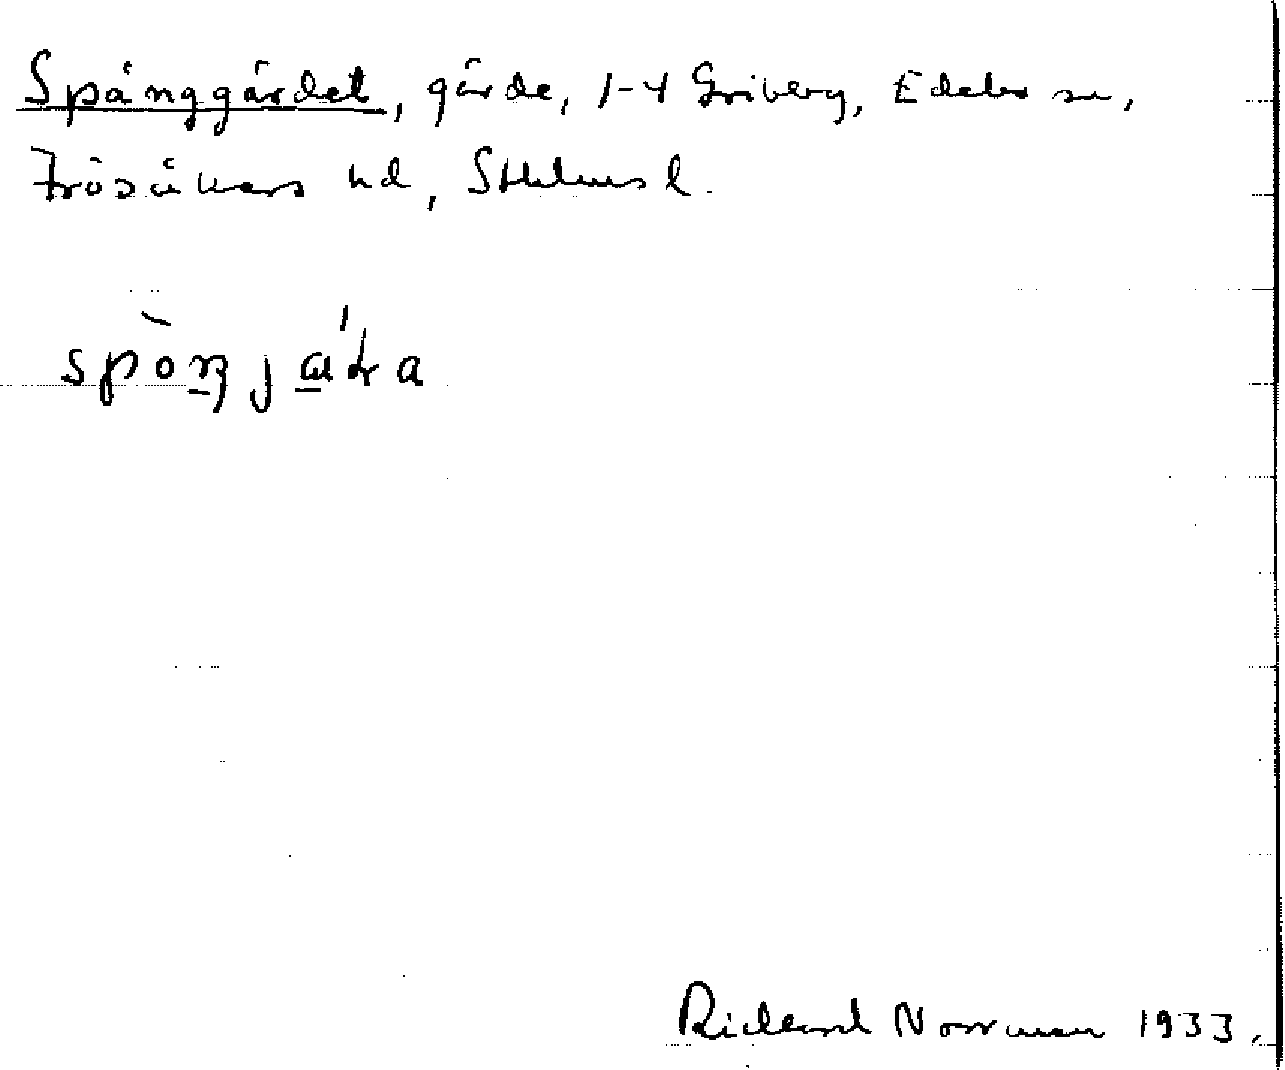 Spånggärdet, gärde, 1-4 Griberg, Edebo sn,
Frösåkers hd, Sthlms l.
spòŋjæ̀ḍa
Richard Norrman 1933.